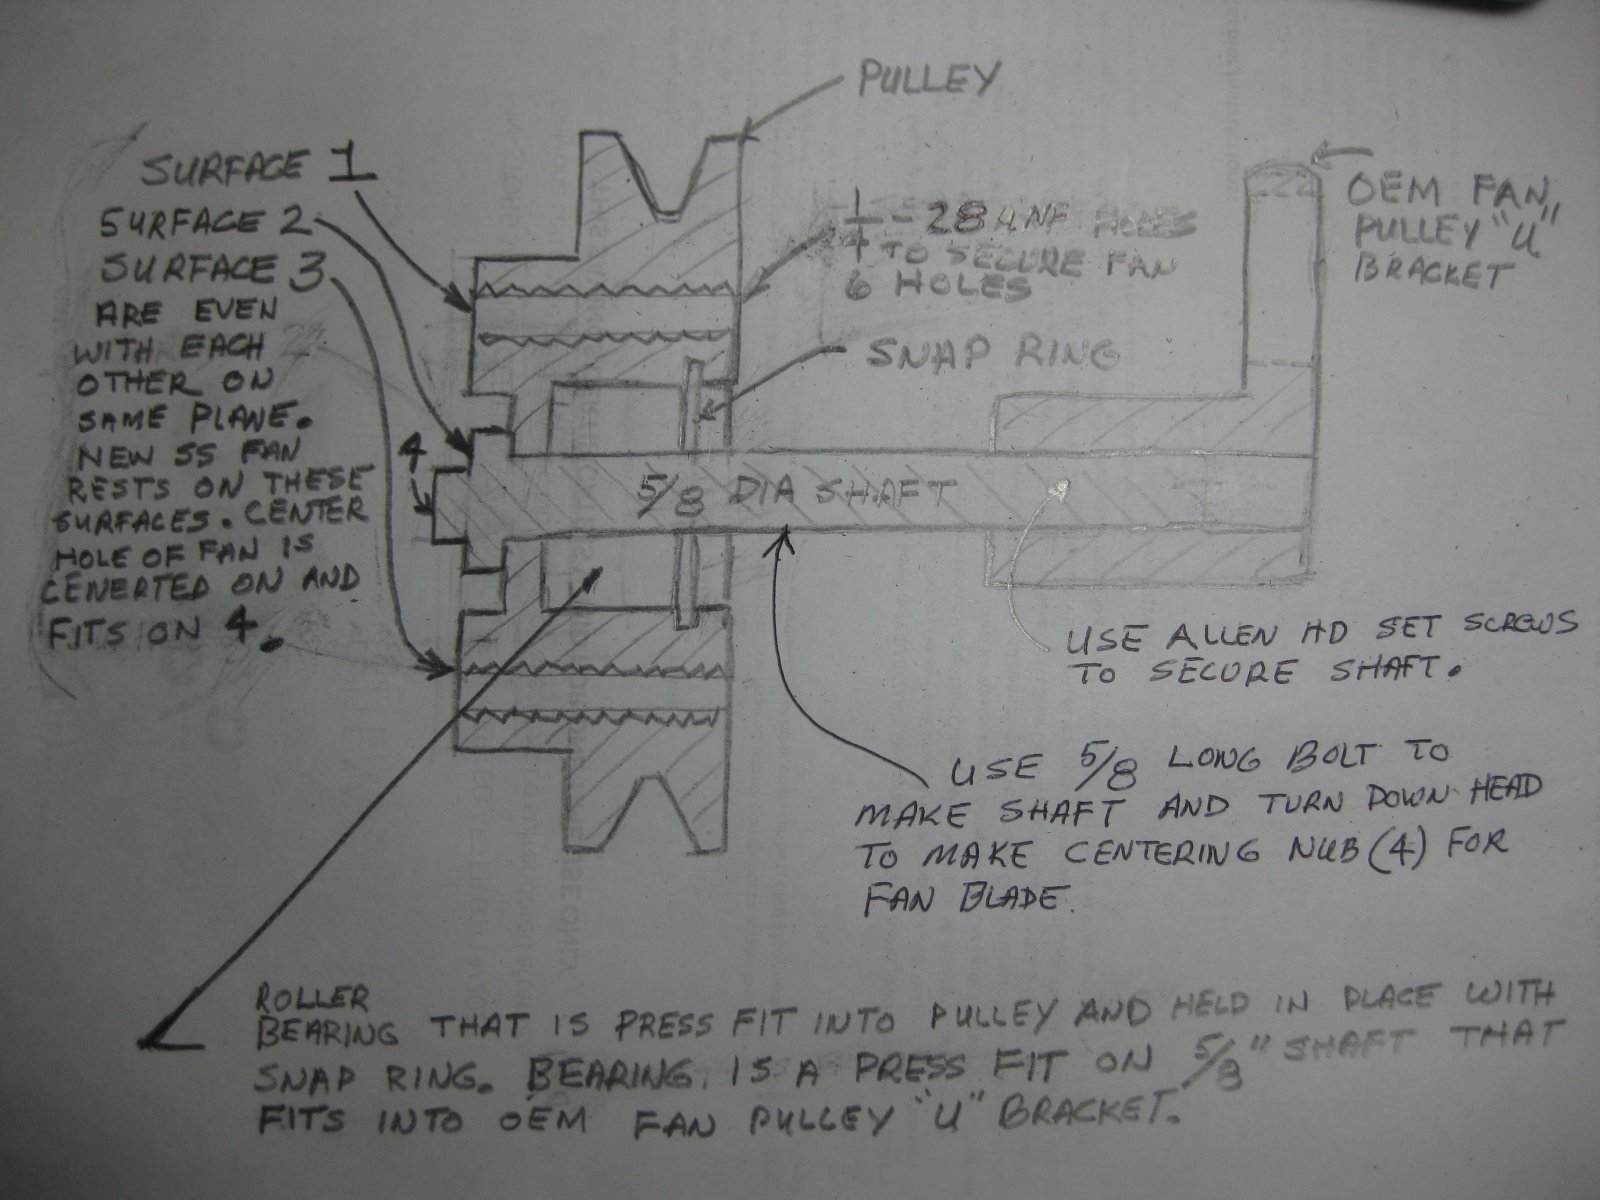 PULLEY
SURFACE 1
SURFACE 2
SURFACE 3
ARE EVEN
WITH EACH
OTHER ON
SAME PLANE.
NEW SS FAN
RESTS ON THESE
SURFACES. CENTER
HOLE OF FAN IS
CENERTED ON AND
FITS ON 4.
4
1/4 - 28 UNF HOLES
TO SECURE FAN
6 HOLES
SNAP RING
OEM FAN
PULLEY "U"
BRACKET
5/8 DIA SHAFT
USE ALLEN HD SET SCREWS
TO SECURE SHAFT.
USE 5/8 LONG BOLT TO
MAKE SHAFT AND TURN DOWN HEAD
TO MAKE CENTERING NUB (4) FOR
FAN BLADE.
ROLLER
BEARING THAT IS PRESS FIT INTO PULLEY AND HELD IN PLACE WITH
SNAP RING. BEARING IS A PRESS FIT ON 5/8" SHAFT THAT
FITS INTO OEM FAN PULLEY "U" BRACKET.